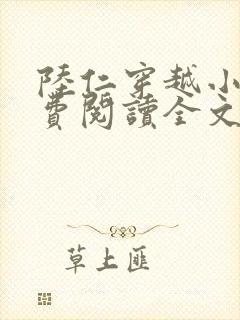 陸仁穿越小
費閱讀全文
草上匪